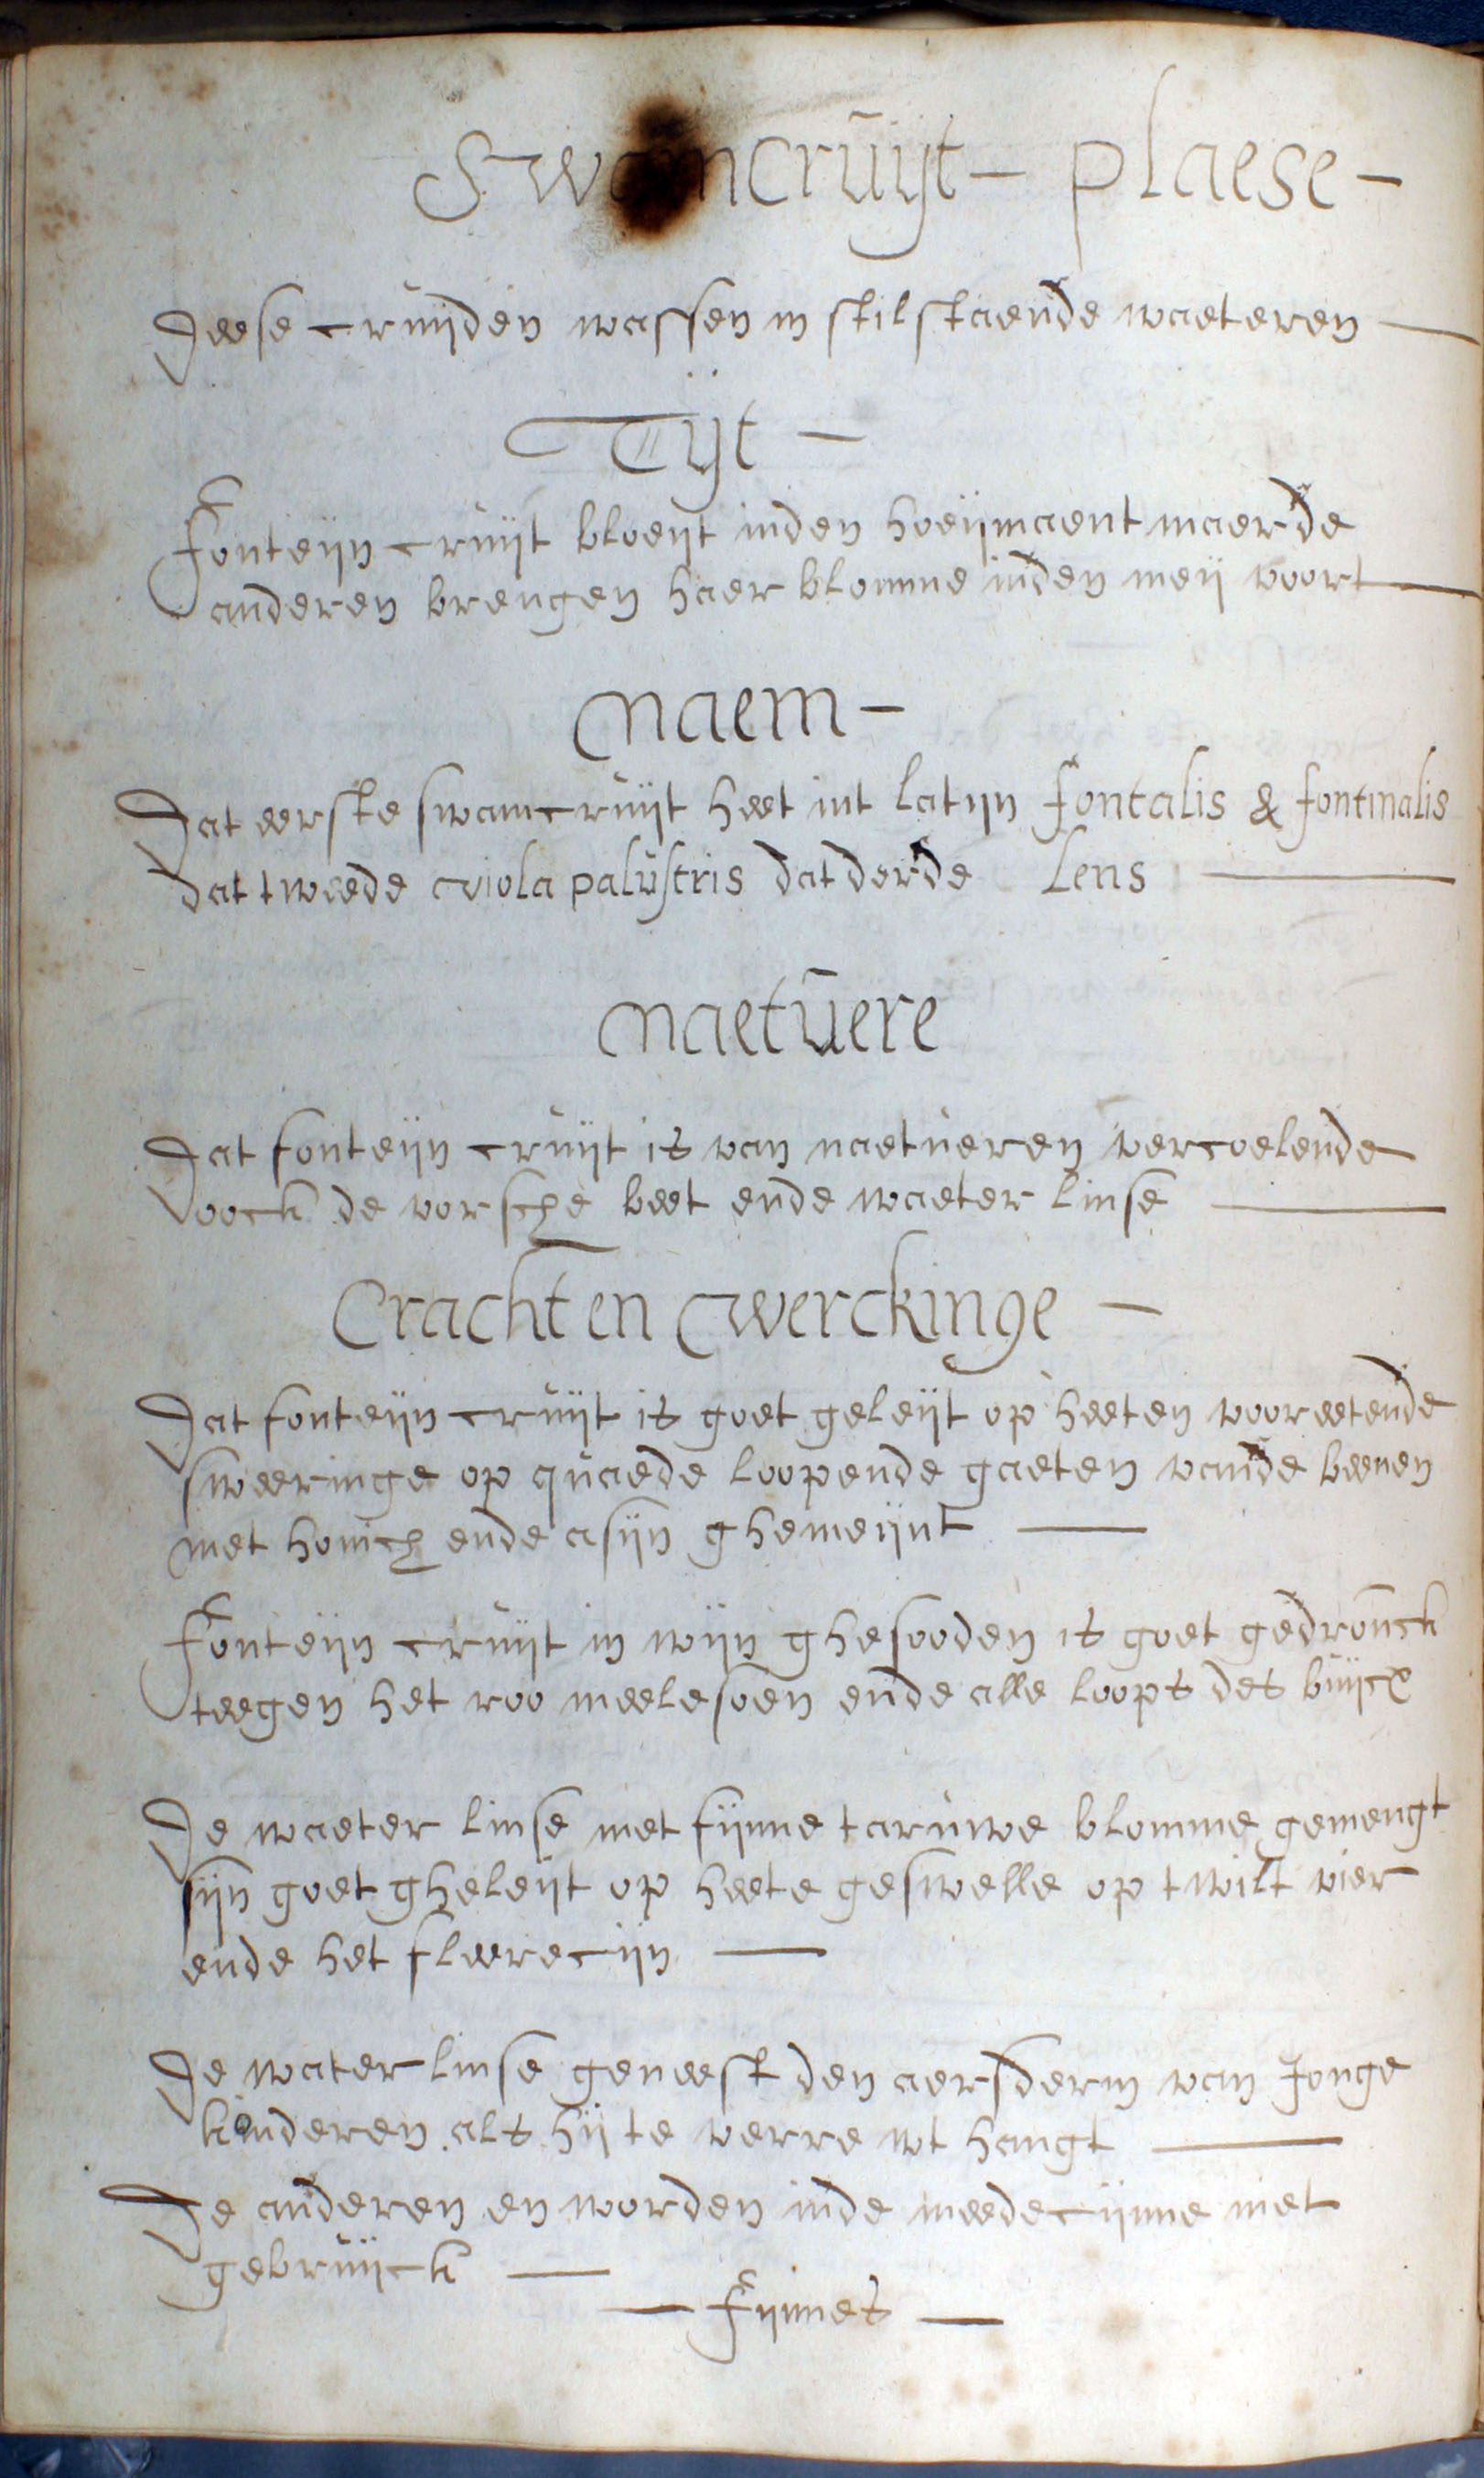 Swamcruijt - plaese -
Deese cruijden wassen in stilstaende waeteren
Tijt -
Fonteijn cruijt bloeijt inden hoeijmaent maer de
anderen brengen haer blomme inden meij voort
Naem -
Dat eerste swamcruijt heet int latijn fontalis & fontinalis
dat tweede viola palustris dat derde Lens
Naetuere
Dat fonteijn cruijt is van naetueren vercoelende
oock de vorsche beet ende waeter linse
Cracht en Werckinge -
Dat fonteijn cruijt is goet geleijt op heeten vooreetende
sweeringe op quaede loopende gaeten vande beenen
met honich ende asijn ghemeijnt
Fonteijn cruijt in wijn ghesooden is goet gedronck
teegen het roo meelesoen ende alle loops des buijcx
De waeter linse met fijnne taruwe blomme gemengt
sijn goet gheleijt op heete geswelle op twilt vier
ende het fleerecijn
De water linse geneest den aersderm van Jonge
kinderen als hij te verre wt hangt
De anderen en worden inde meedecijnne niet
gebruijck
- Fijnnes -